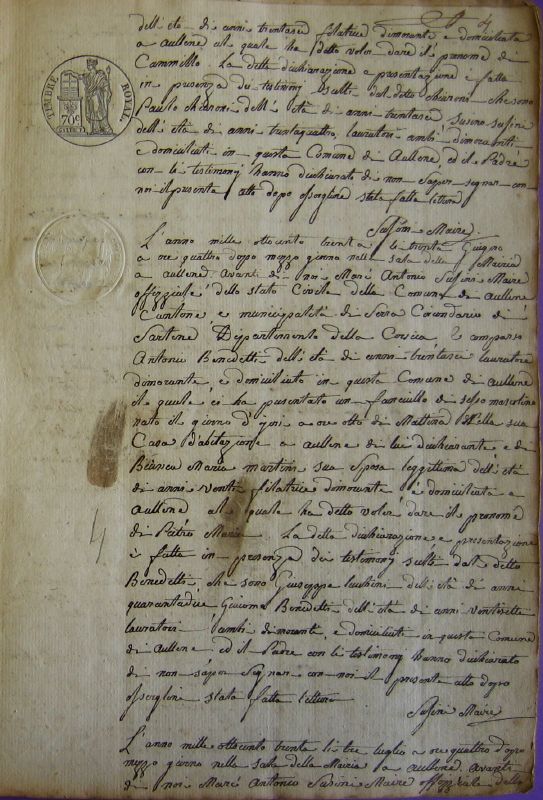 4
TIMBRE ROYAL
70c
dell'età di anni trentasei filatrice dimorante e domiciliata
a Aullene al quale ha detto voler dare il prenome di
Cammillo. La detta dichiarazione e presentazione è fatta
in presenza de testimonj scelti dal detto che sono
Paulo dell'età di anni trentasei, Susini
dell'età di anni trentaquattro lauratori ambi dimoranti
e domiciliati in questa Comune di Aullene, ed il Padre
con li testimonj hanno dichiarato di non saper segnar con
noi il presente atto dopo essergline stata fatta lettura
Susini Maire
L'anno mille ottocento trenta li trenta Giugno
a ore quattro dopo mezzo giorno nella sala della Mairia
a Aullene Avanti di noi Marc' Antonio Susini Maire
offizziale dello stato Civile della Comune di Aullene
Cantone e municipalità di Serra Circundario di
Sartene Dipartimento della Corsica è comparso
Antonio Benedetti dell'età di anni trentasei lauratore
dimorante, e domiciliato in questa Comune di Aullene
il quale ci ha presentato un fanciullo di sesso mascolino
nato il giorno d'ogni a ore otto di Mattina nella sua
Casa d'abitazione a Aullene di lui dichiarante e di
Bianca Maria Martini sua sposa leggittima dell'età
di anni venti filatrice dimorante e domiciliata a
Aullene al quale ha detto voler dare il prenome
di Pietro Maria. La detta dichiarazione e presentazione
è fatta in presenza dei testimonj scelti dal detto
Benedetti che sono Giuseppe Lucchini dell'età di anni
quarantadue Giacomo Benedetti dell'età di anni ventisette
lauratori ambi dimoranti, e domiciliati in questa Comune
di Aullene ed il Padre con li testimonj hanno dichiarato
di non saper Segnar con noi il presente atto dopo
esserglini stata fatta lettura
Susini Maire
4
L'anno mille ottocento trenta li tre luglio a ore quattro dopo
mezzo giorno nella sala della Mairia a Aullene avanti
di noi Marc' Antonio Susini Maire offizziale dello